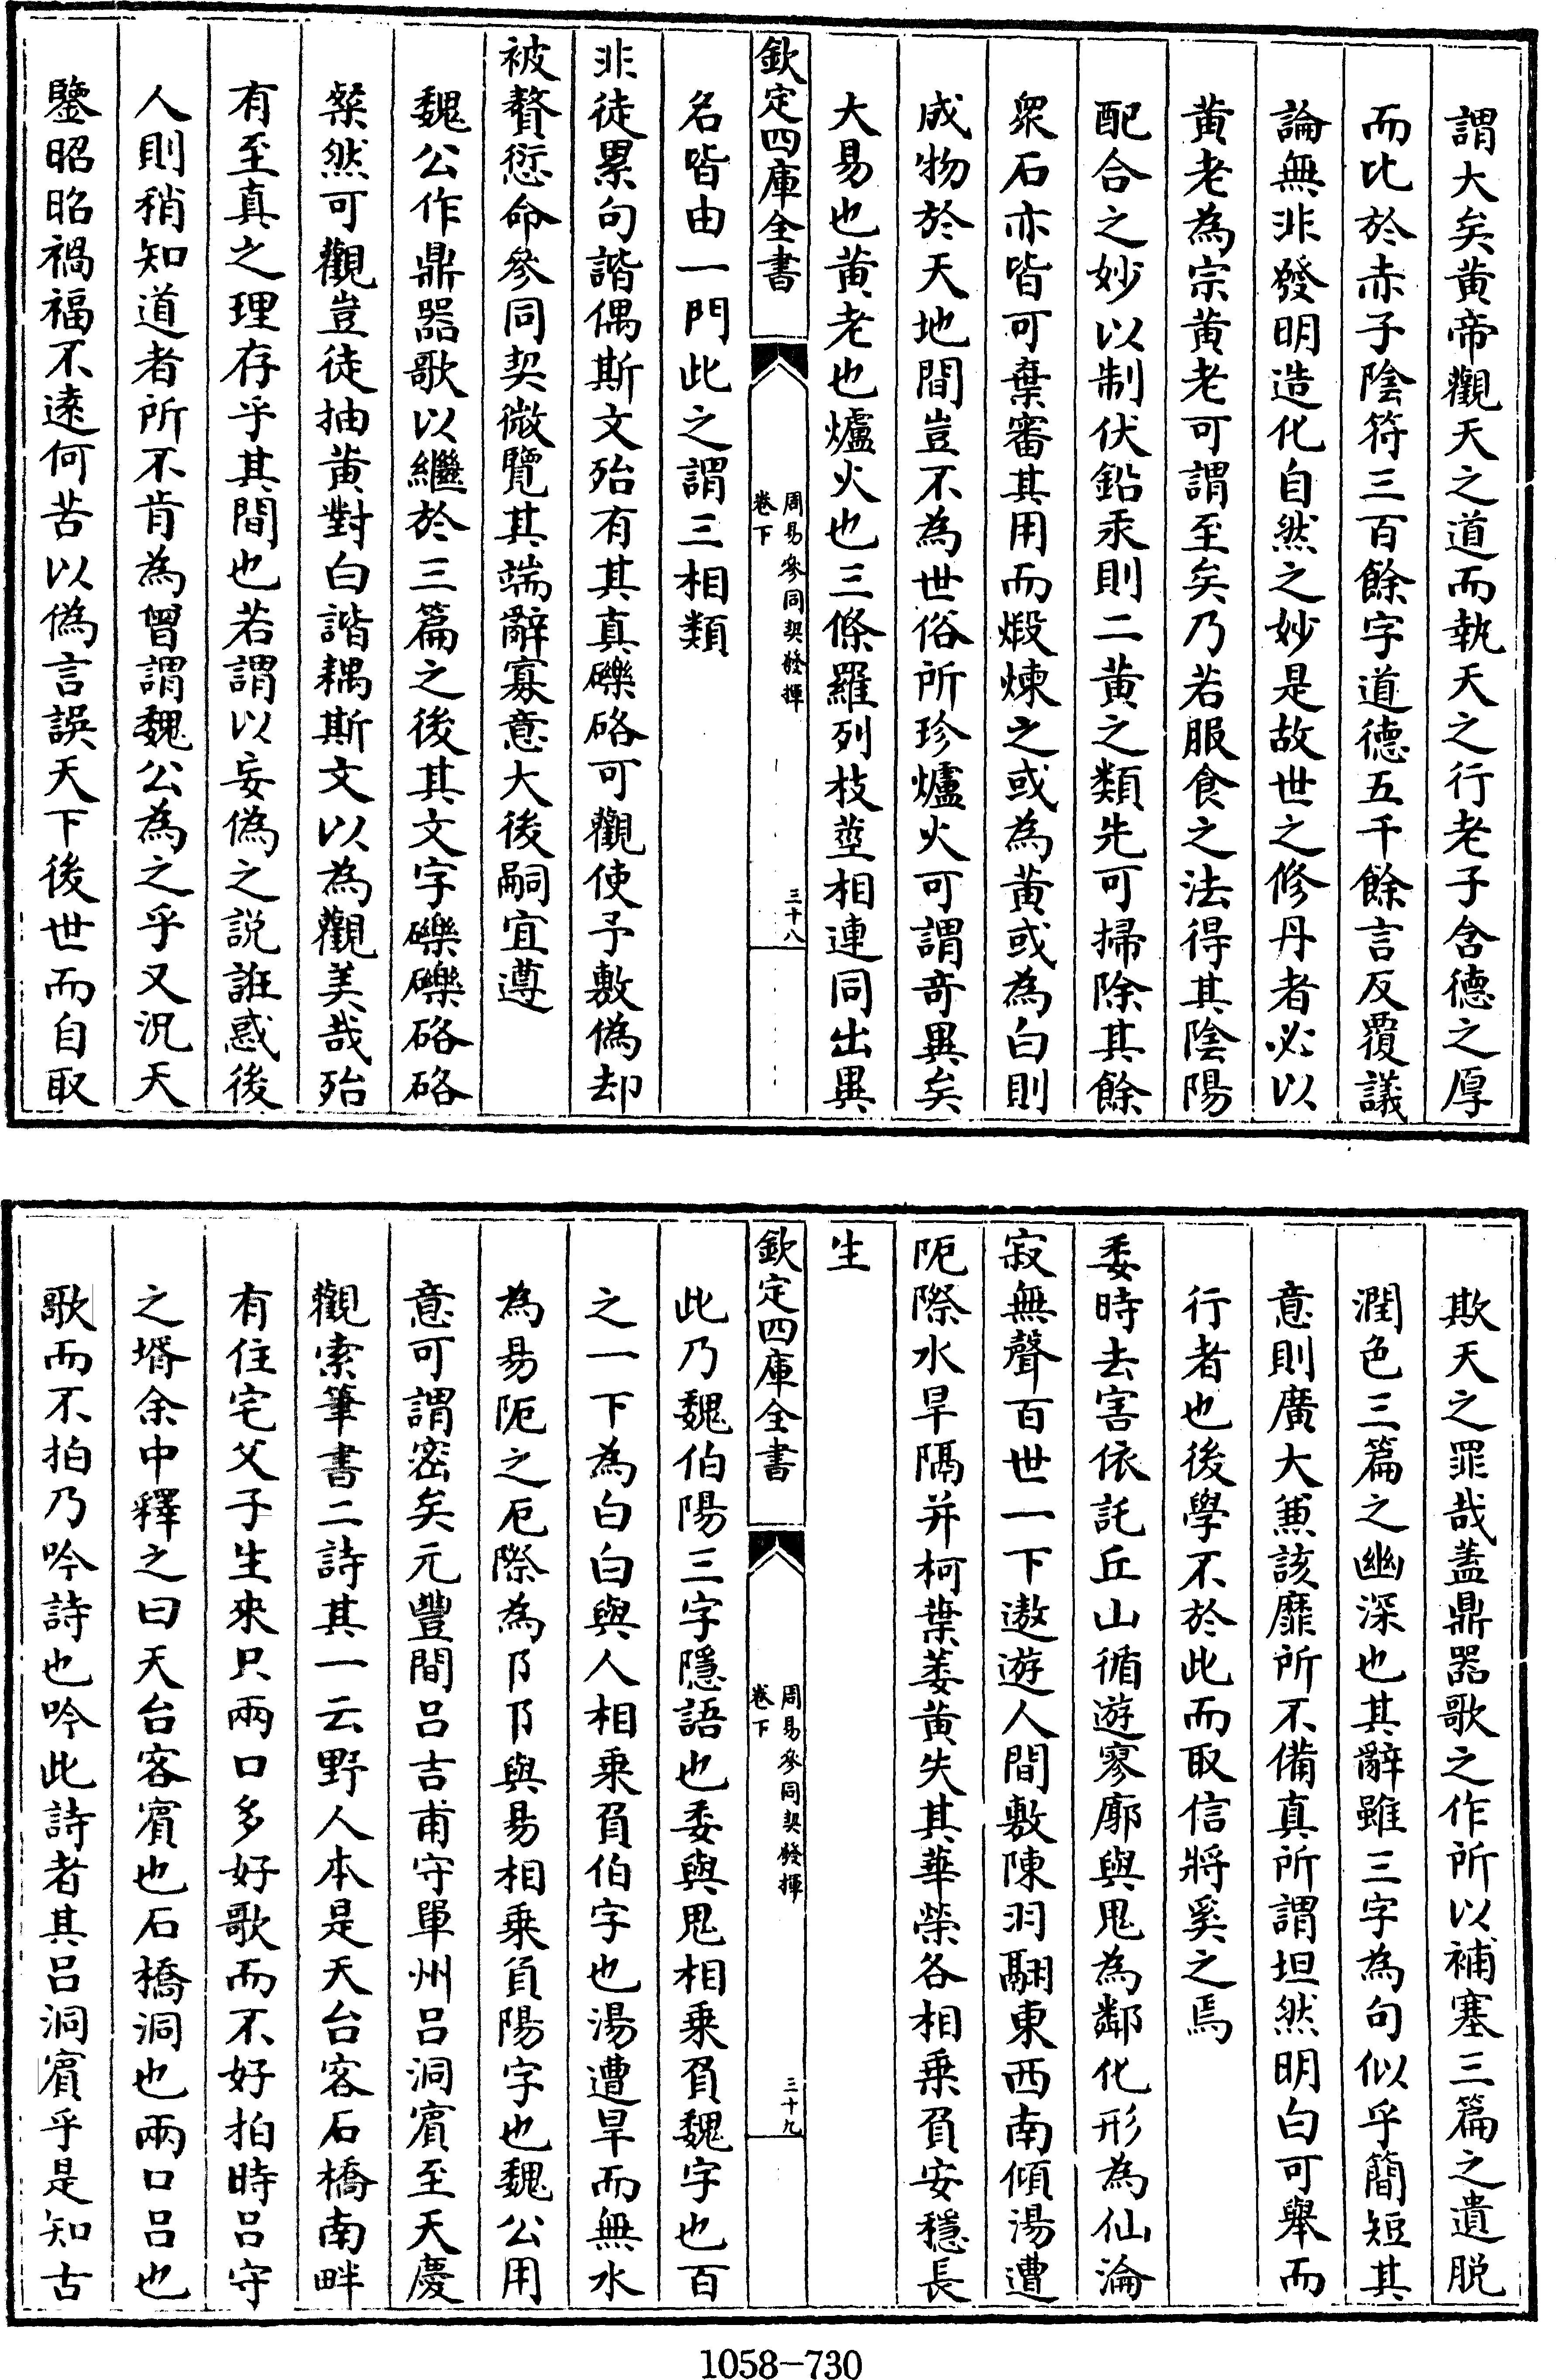 謂大矣黄帝觀天之道而執天之行老子含德之厚
而比於赤子隂符三百餘字道德五千餘言反覆議
論無非發明造化自然之妙是故世之修丹者必以
黄老為宗黄老可謂至矣乃若服食之法得其隂陽
配合之妙以制伏鉛汞則二黄之類先可掃除其餘
衆石亦皆可棄審其用而煅煉之或為黄或為白則
成物於天地間豈不為世俗所珍爐火可謂竒異矣
大易也黄老也爐火也三條羅列枝莖相連同出異
欽定四庫全書
周易參同契發揮
卷下
三十八
名皆由一門此之謂三相類
非徒累句諧偶斯文殆有其真礫硌可觀使予敷偽却
被贅愆命參同契微覽其端辭寡意大後嗣宜遵
魏公作鼎器歌以繼於三篇之後其文字礫礫硌硌
粲然可觀豈徒抽黄對白諧耦斯文以為觀美哉殆
有至真之理存乎其間也若謂以妄偽之説誑惑後
人則稍知道者所不肯為曾謂魏公為之乎又况天
鑒昭昭禍福不逺何苦以偽言誤天下後世而自取
欺天之罪哉葢鼎器歌之作所以補塞三篇之遺脱
潤色三篇之幽深也其辭雖三字為句似乎簡短其
意則廣大兼該靡所不備真所謂坦然明白可舉而
行者也後學不於此而取信將奚之焉
委時去害依託丘山循遊寥廓與鬼為鄰化形為仙淪
寂無聲百世一下遨遊人間敷陳羽翮東西南傾湯遭
阨際水旱隔并柯葉萎黄失其華榮各相乗負安穩長
生
欽定四庫全書
周易參同契發揮
卷下
三十九
此乃魏伯陽三字隱語也委與鬼相乗負魏字也百
之一下為白白與人相乗負伯字也湯遭旱而無水
為昜阨之厄際為阝阝與昜相乗負陽字也魏公用
意可謂密矣元豐間吕吉甫守單州吕洞賓至天慶
觀索筆書二詩其一云野人本是天台客石橋南畔
有住宅父子生來只兩口多好歌而不好拍時吕守
之壻余中釋之曰天台客賓也石橋洞也兩口吕也
歌而不拍乃吟詩也吟此詩者其吕洞賓乎是知古
1058-730